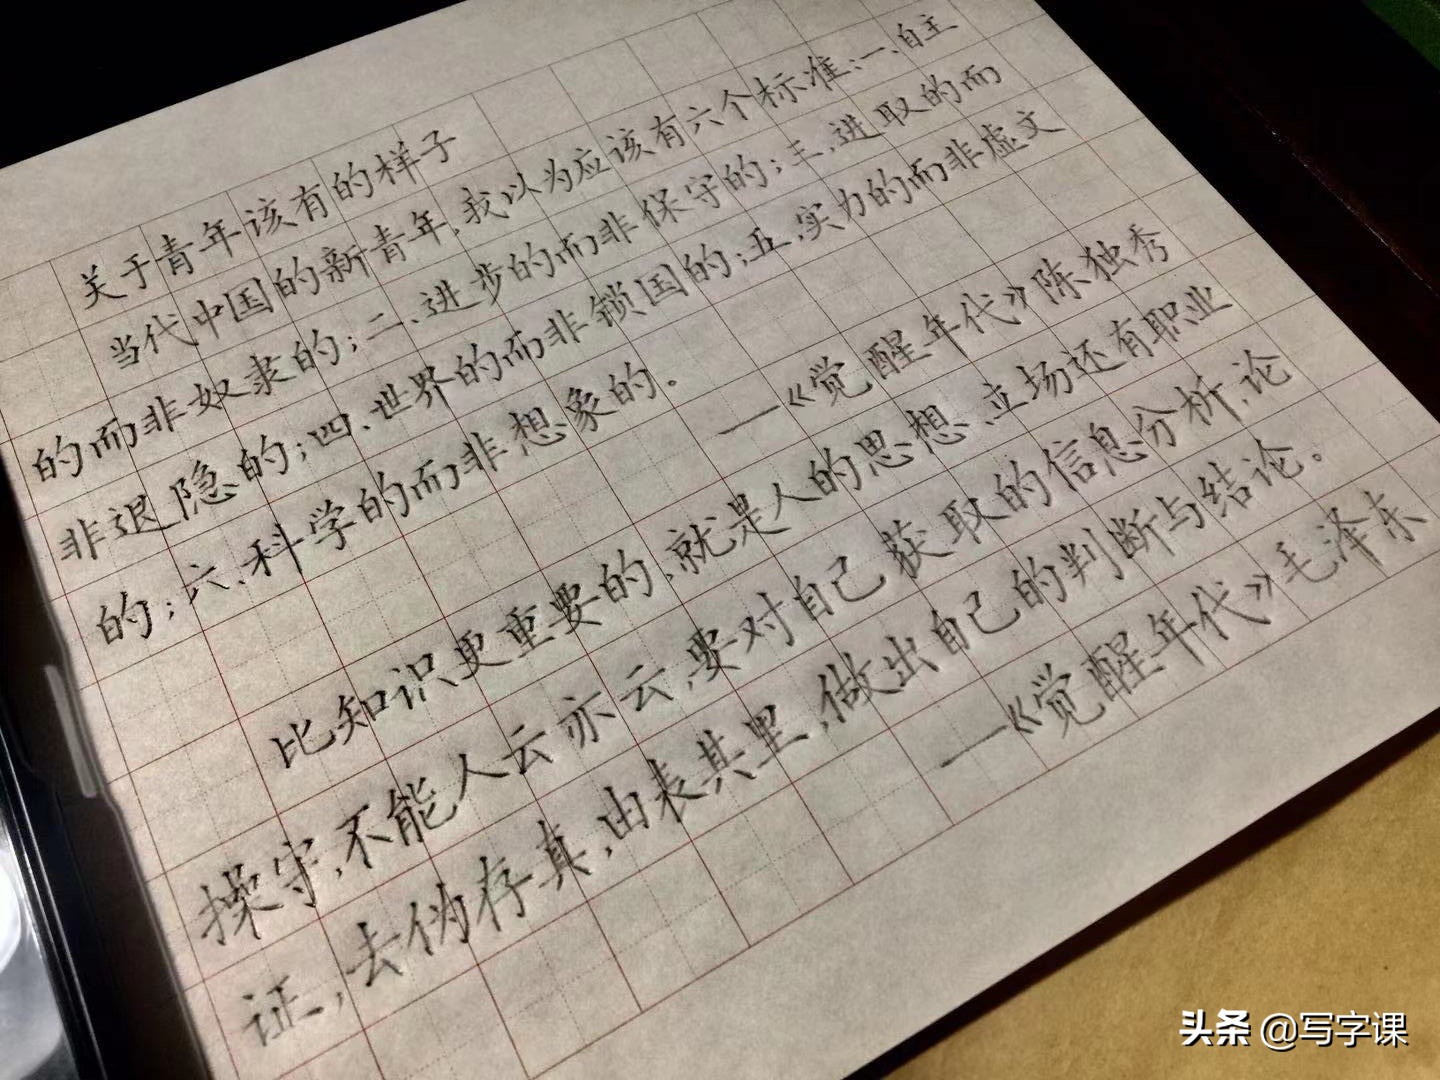 关于青年该有的样子
当代中国的新青年,我以为应该有六个标准:一、自主
的而非奴隶的;二、进步的而非保守的;三、进取的而
非退隐的;四、世界的而非锁国的;五、实力的而非虚文
的;六、科学的而非想象的。
——《觉醒年代》陈独秀
比知识更重要的,就是人的思想、立场还有职业
操守,不能人云亦云,要对自己获取的信息分析,论
证,去伪存真,由表其里,做出自己的判断与结论。
——《觉醒年代》毛泽东
头条 @写字课